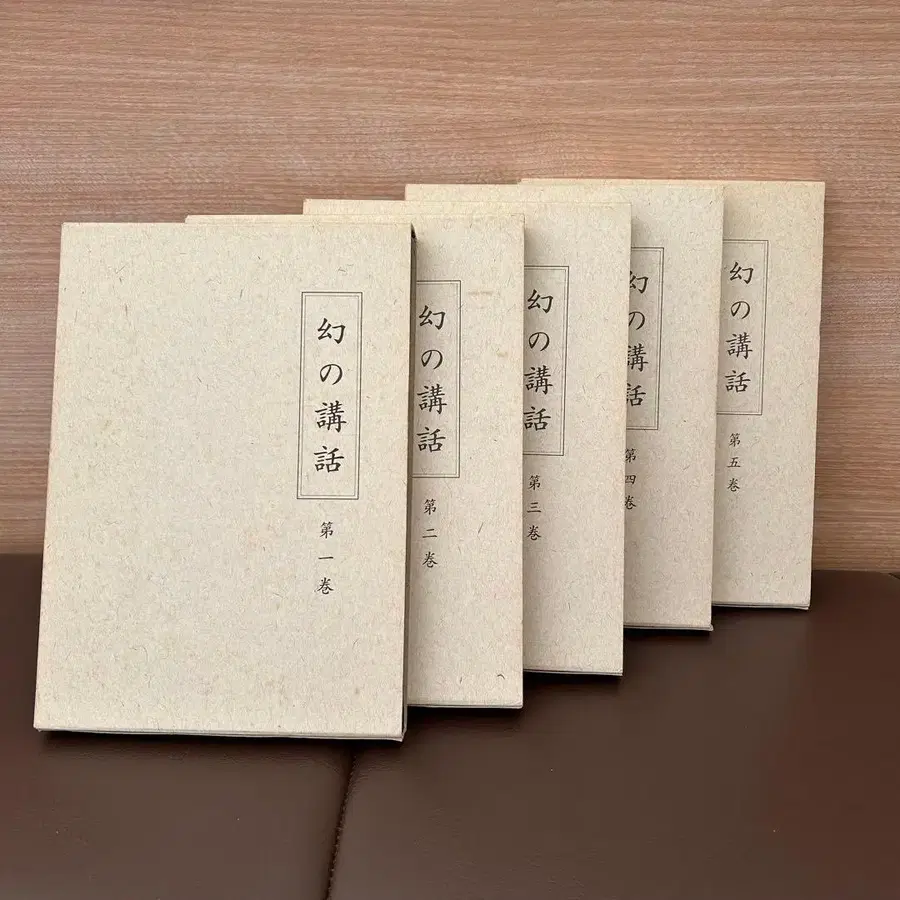 幻の講話
第一巻
幻の講話
第二巻
幻の講話
第三巻
幻の講話
第四巻
幻の講話
第五巻